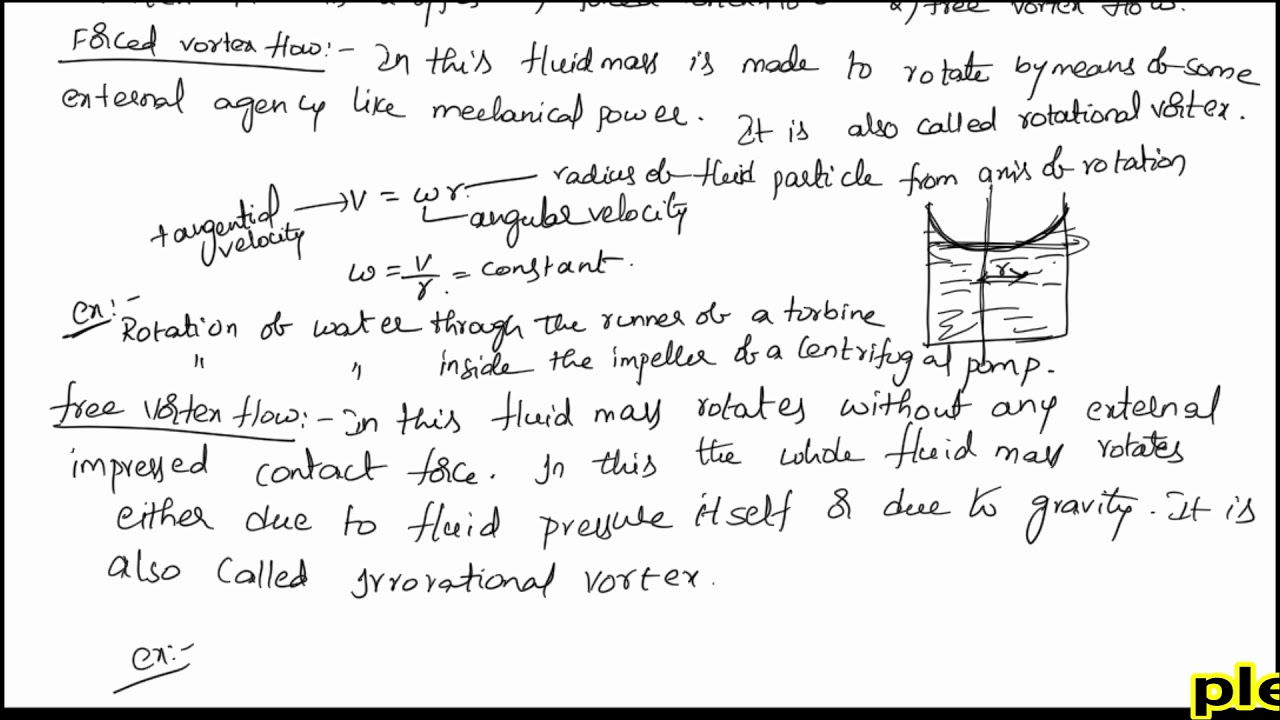 2) free vortex flow.
Forced vortex flow:- In this fluid mass is made to rotate by means of some
external agency like mechanical power. It is also called rotational vortex.
tangential velocity → V = ωr radius of fluid particle from axis of rotation
angular velocity
ω = V/r = constant.
ex:- Rotation of water through the runner of a turbine
" " inside the impeller of a Centrifugal pump.
r
free vortex flow:- In this fluid mass rotates without any external
impressed contact force. In this the whole fluid mass rotates
either due to fluid pressure itself or due to gravity. It is
also called Irrorational vortex.
ex:-
ple